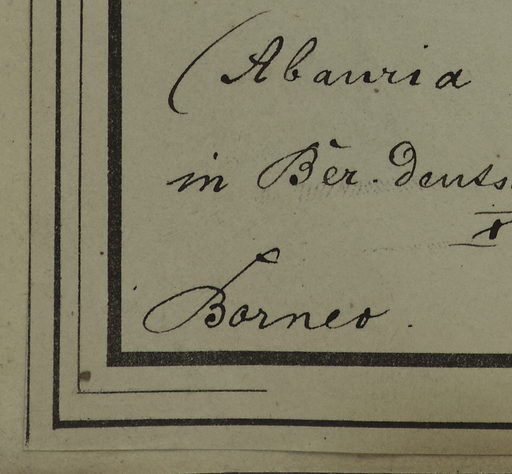 (Abauria
in Ber. deuts
Borneo.